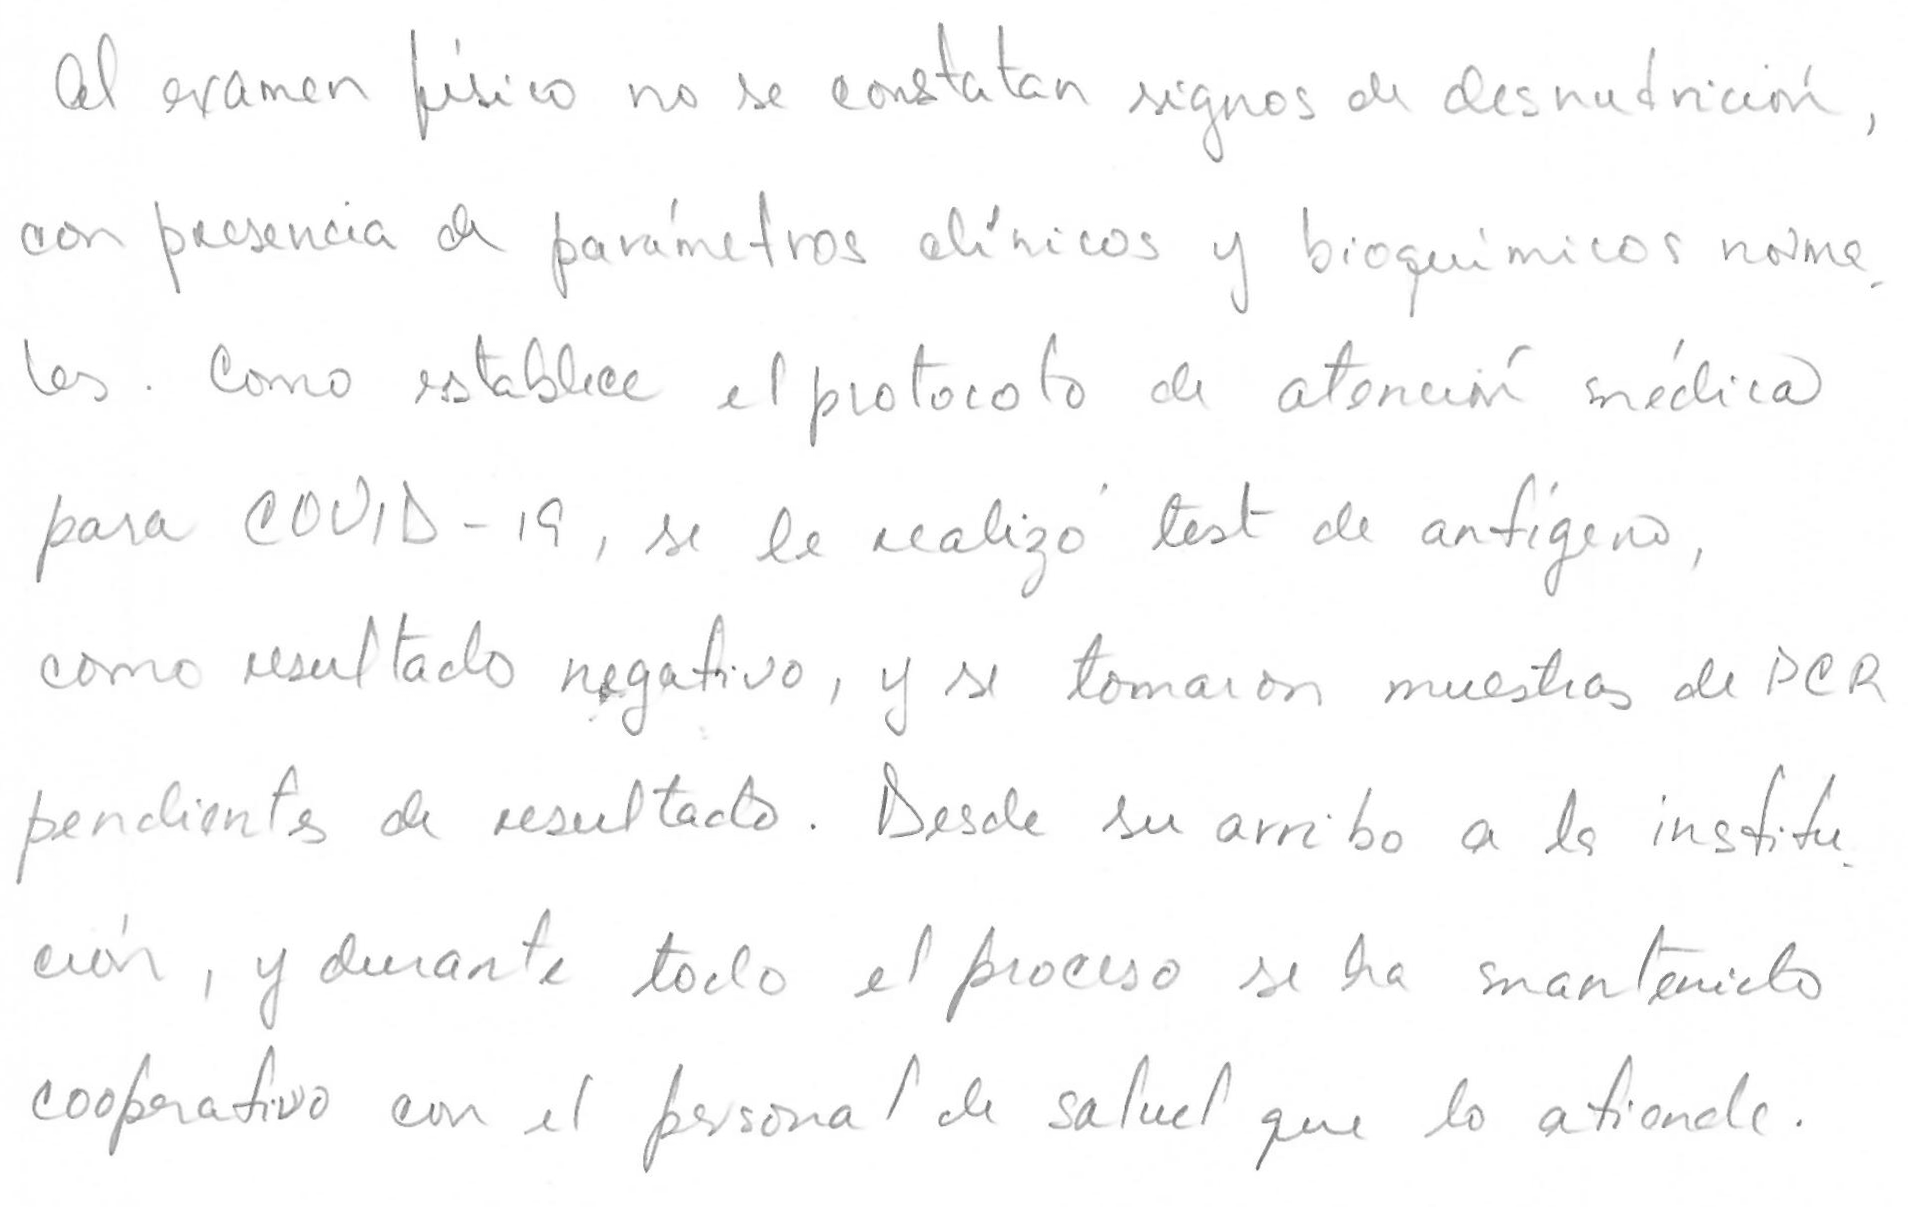 Al examen físico no se constatan signos de desnutrición,
con presencia de parámetros clínicos y bioquímicos norma-
les. Como establece el protocolo de atención médica
para COVID-19, se le realizó test de antígeno,
como resultado negativo, y se tomaron muestras de PCR
pendientes de resultado. Desde su arribo a la institu-
ción, y durante todo el proceso se ha mantenido
cooperativo con el personal de salud que lo atiende.